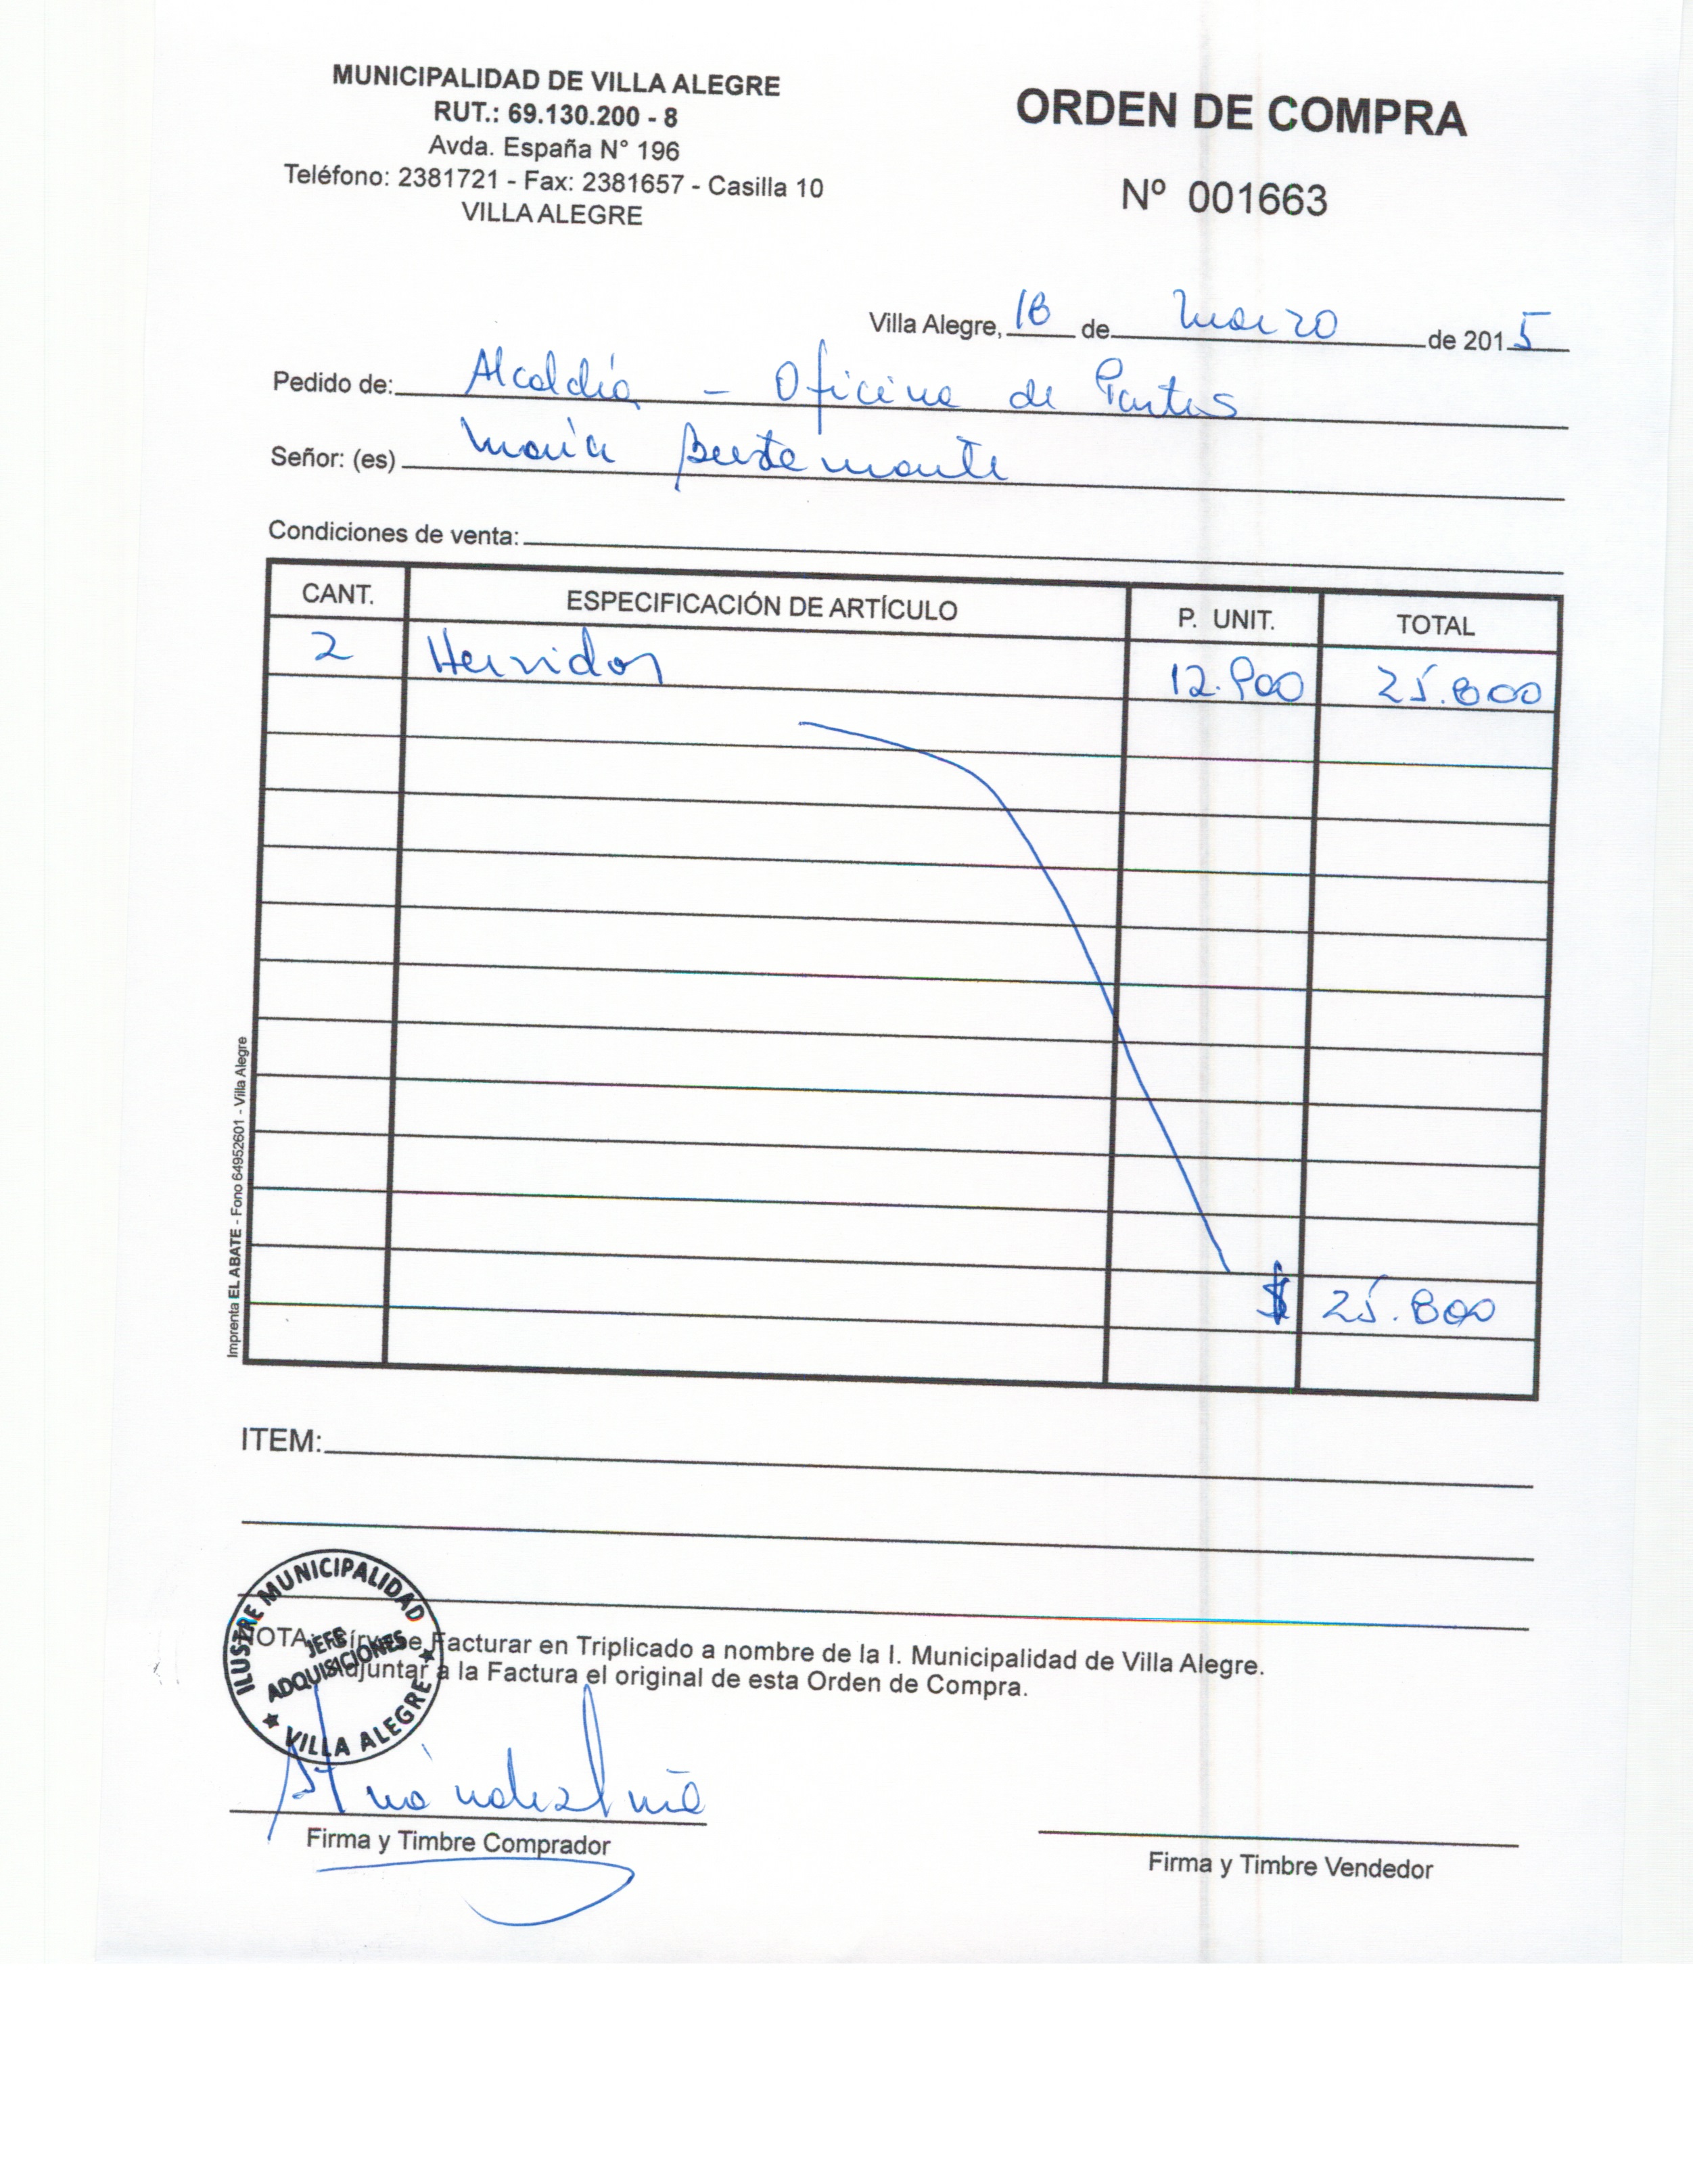 MUNICIPALIDAD DE VILLA ALEGRE
RUT.: 69.130.200 - 8
Avda. España N° 196
Teléfono: 2381721 - Fax: 2381657 - Casilla 10
VILLA ALEGRE
ORDEN DE COMPRA
Nº 001663
Villa Alegre, 18 de Marzo de 2015
Pedido de: Alcaldía - Oficina de Partes
Señor: (es) María
Condiciones de venta:
CANT. ESPECIFICACIÓN DE ARTÍCULO P. UNIT. TOTAL
2 Hervidor 12.900 25.800
$ 25.800
Imprenta EL ABATE - Fono 64952601 - Villa Alegre
ITEM:
ILUSTRE MUNICIPALIDAD
JEFE
ADQUISICIONES
VILLA ALEGRE
NOTA: Sírvase Facturar en Triplicado a nombre de la I. Municipalidad de Villa Alegre.
Adjuntar a la Factura el original de esta Orden de Compra.
Firma y Timbre Comprador
Firma y Timbre Vendedor